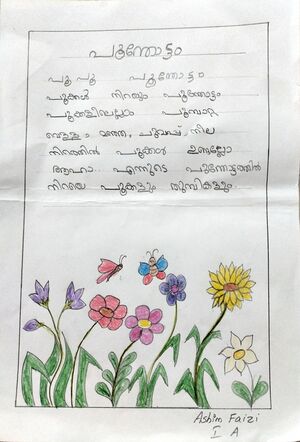 പൂന്തോട്ടം
പൂ പൂ പൂന്തോട്ടം
പൂക്കൾ നിറയും പൂന്തോട്ടം
പൂക്കളിലെല്ലാം പൂമ്പാറ്റ
വെള്ള, മഞ്ഞ, ചുവപ്പ്, നീല
നിറത്തിൽ പൂക്കൾ ഉണ്ടല്ലോ
ആഹാ എന്നുടെ പൂന്തോട്ടത്തിൽ
നിറയെ പൂക്കളും തുമ്പികളും
Ashim Faizi
I A